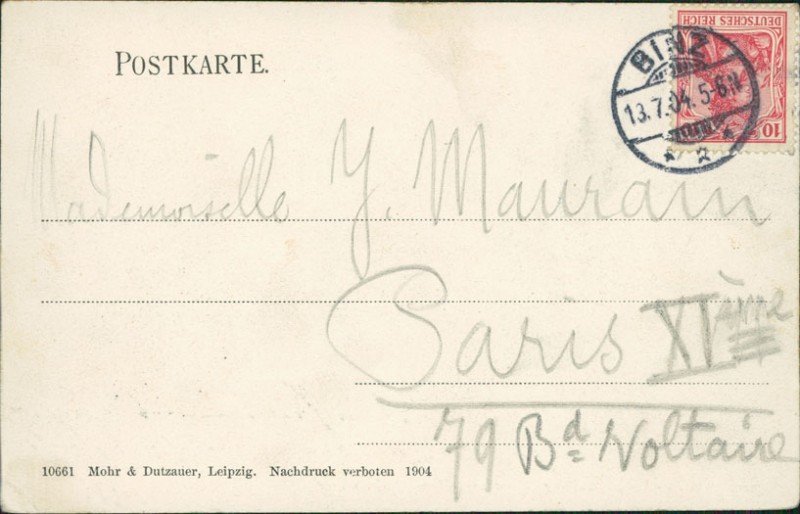 POSTKARTE.
DEUTSCHES REICH
10
BINZ
13.7.04. 5-6N
Mademoiselle Y. Maurain
Paris XIème
79 Bd Voltaire
10661 Mohr & Dutzauer, Leipzig. Nachdruck verboten 1904